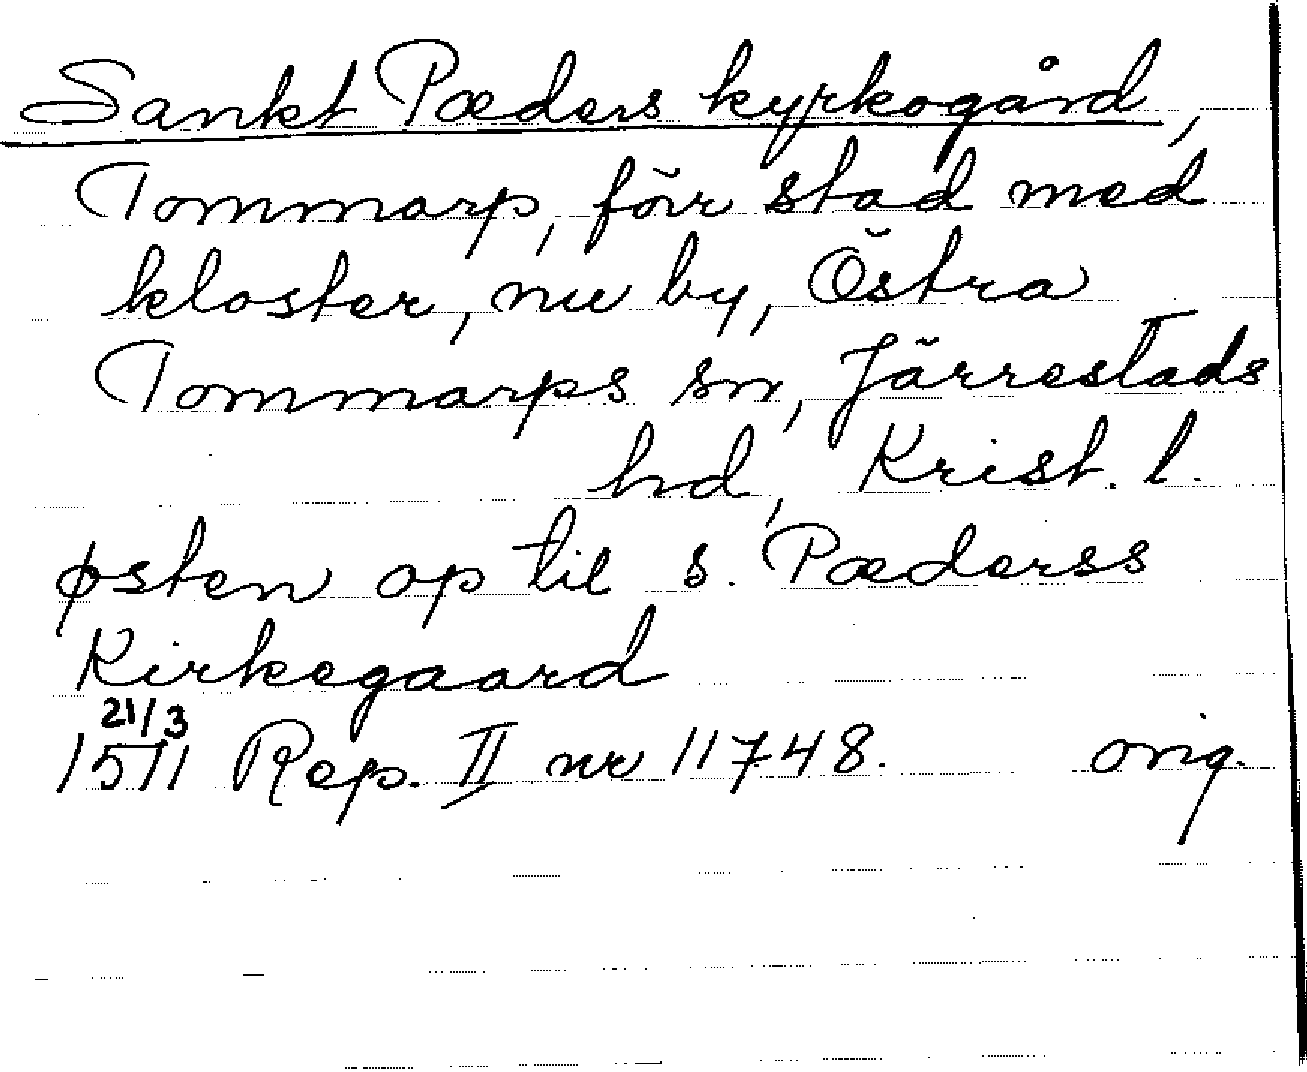 Sankt Pæders kyrkogård,
Tommarp, förr stad med
kloster, nu by, Östra
Tommarps sn, Järrestads
hd, Krist. l.
østen op til s. Pæderss
Kirkegaard
21/3
1511 Rep. II nr 11748. orig.